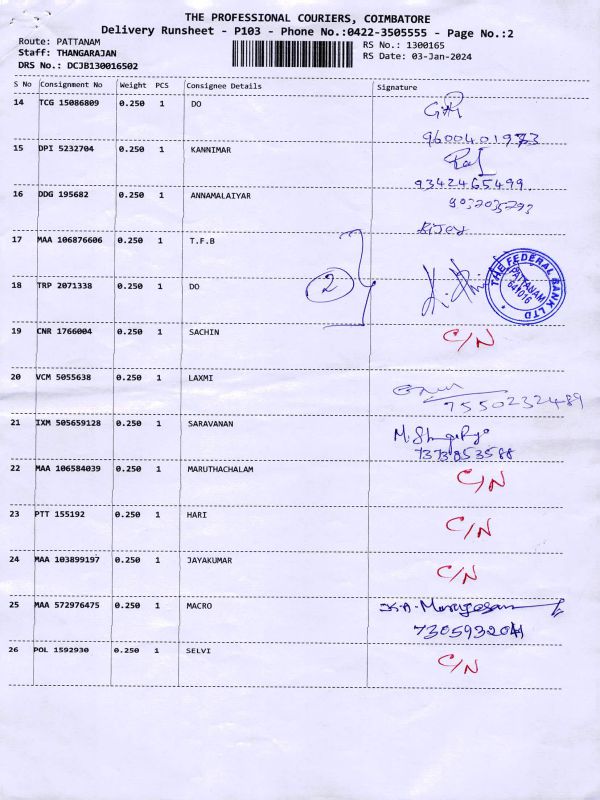 THE PROFESSIONAL COURIERS, COIMBATORE
Delivery Runsheet - P103 - Phone No.:0422-3505555 - Page No.:2
Route: PATTANAM
RS No.: 1300165
Staff: THANGARAJAN
RS Date: 03-Jan-2024
DRS No.: DCJB130016502
S No Consignment No Weight PCS Consignee Details Signature
14 TCG 15086809 0.250 1 DO
9600401973
15 DPI 5232704 0.250 1 KANNIMAR
9342465499
16 DDG 195682 0.250 1 ANNAMALAIYAR
Bijoy
17 MAA 106876606 0.250 1 T.F.B
2
18 TRP 2071338 0.250 1 DO
THE FEDERAL BANK LTD
PATTANAM
641016
19 CNR 1766004 0.250 1 SACHIN C/N
20 VCM 5055638 0.250 1 LAXMI
7550232489
21 IXM 505659128 0.250 1 SARAVANAN
7373853588
22 MAA 106584039 0.250 1 MARUTHACHALAM C/N
23 PTT 155192 0.250 1 HARI C/N
24 MAA 103899197 0.250 1 JAYAKUMAR C/N
25 MAA 572976475 0.250 1 MACRO K.A.Murugesan
26 POL 1592930 0.250 1 SELVI C/N